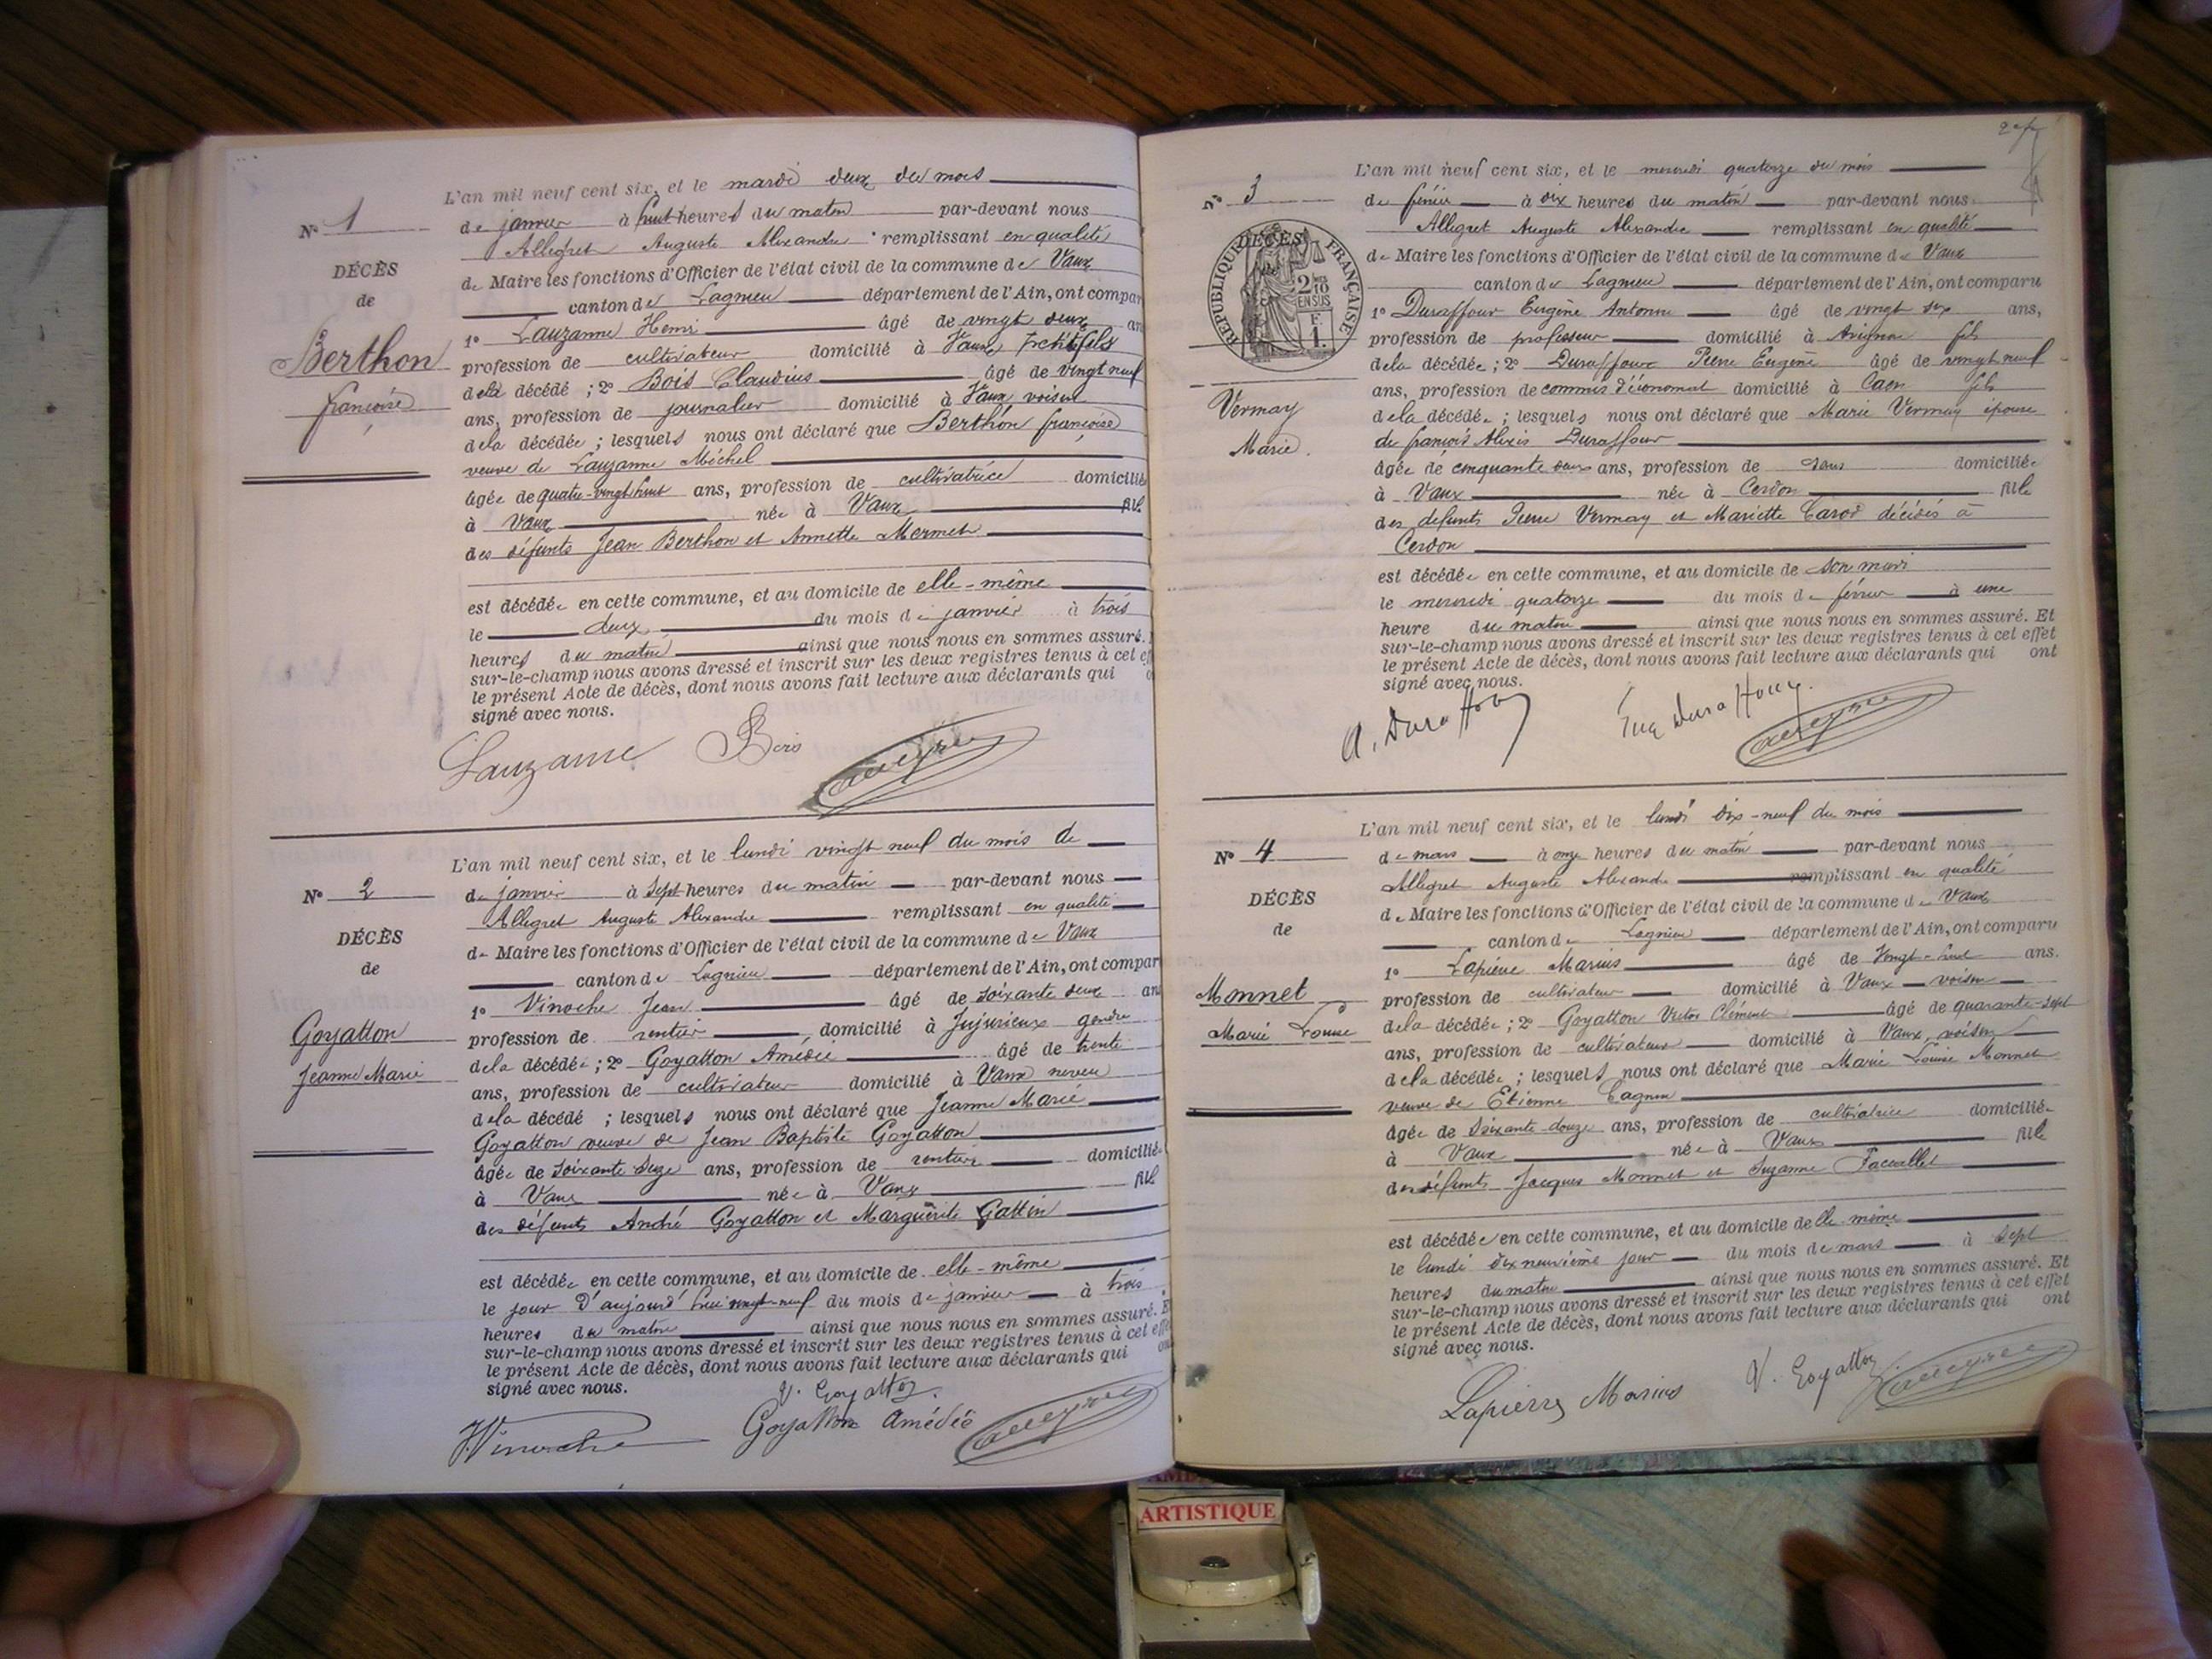 N° 1
DÉCÈS
de
Berthon
françoise
L'an mil neuf cent six, et le mardi deux du mois
de janvier à huit heures du matin par-devant nous
Allegret Auguste Alexandre remplissant en qualité
de Maire les fonctions d'Officier de l'état civil de la commune de Vaux
canton de Lagnieu département de l'Ain, ont compar
1° Lauzanne Henri âgé de vingt deux an
profession de cultivateur domicilié à Vaux petit fils
de la décédé ; 2° Bois Claudius âgé de vingt neuf
ans, profession de journalier domicilié à Vaux voisin
de la décédée ; lesquels nous ont déclaré que Berthon françoise
veuve de Lauzanne Michel
âgée de quatre-vingt huit ans, profession de cultivatrice domicilié
à Vaux née à Vaux fille
des défunts Jean Berthon et Annette Mermet
est décédée en cette commune, et au domicile de elle-même
le deux du mois de janvier à trois
heures du matin ainsi que nous nous en sommes assuré.
sur-le-champ nous avons dressé et inscrit sur les deux registres tenus à cet eff
le présent Acte de décès, dont nous avons fait lecture aux déclarants qui o
signé avec nous.
Lauzanne Bois
N° 2
DÉCÈS
de
Goyatton
Jeanne Marie
L'an mil neuf cent six, et le lundi vingt neuf du mois de
de janvier à sept heures du matin par-devant nous
Allegret Auguste Alexandre remplissant en qualité
de Maire les fonctions d'Officier de l'état civil de la commune de Vaux
canton de Lagnieu département de l'Ain, ont compar
1° Vinoche Jean âgé de soixante deux an
profession de rentier, domicilié à Jujurieux gendre
de la décédée ; 2° Goyatton Amédée âgé de trente
ans, profession de cultivateur domicilié à Vaux neveu
de la décédé ; lesquels nous ont déclaré que Jeanne Marie
Goyatton veuve de Jean Baptiste Goyatton
âgée de soixante ans, profession de domiciliée
à Vaux née à Vaux fille
des défunts André Goyatton et Marguerite Gattin
est décédée en cette commune, et au domicile de elle-même
le jour d'aujourd'hui vingt-neuf du mois de janvier à trois
heures du matin ainsi que nous nous en sommes assuré. E
sur-le-champ nous avons dressé et inscrit sur les deux registres tenus à cet effe
le présent Acte de décès, dont nous avons fait lecture aux déclarants qui on
signé avec nous.
V. Goyatton
J Vinoche Goyatton Amédée
N° 3
RÉPUBLIQUE FRANÇAISE
DÉCÈS
2/10
EN SUS
F.
1.
Vermay
Marie.
L'an mil neuf cent six, et le mercredi quatorze du mois
de février à dix heures du matin par-devant nous
Allegret Auguste Alexandre remplissant en qualité
de Maire les fonctions d'Officier de l'état civil de la commune de Vaux
canton de Lagnieu département de l'Ain, ont comparu
1° Duraffour Eugène Antonin âgé de vingt six ans,
profession de professeur domicilié à Avignon fils
de la décédée ; 2° Duraffour Pierre Eugène âgé de vingt neuf
ans, profession de commis d'économat domicilié à Caen fils
de la décédée ; lesquels nous ont déclaré que Marie Vermay épouse
de françois Alexis Duraffour
âgée de cinquante deux ans, profession de sans domiciliée
à Vaux née à Cerdon fille
des defunts Pierre Vermay et Mariette Carod décédés à
Cerdon
est décédée en cette commune, et au domicile de son mari
le mercredi quatorze du mois de février à une
heure du matin ainsi que nous nous en sommes assuré. Et
sur-le-champ nous avons dressé et inscrit sur les deux registres tenus à cet effet
le présent Acte de décès, dont nous avons fait lecture aux déclarants qui ont
signé avec nous.
A. Duraffour Eug Duraffour.
N° 4
DÉCÈS
de
Monnet
Marie Louise
L'an mil neuf cent six, et le lundi dix-neuf du mois
de mars à onze heures du matin par-devant nous
Allegret Auguste Alexandre remplissant en qualité
de Maire les fonctions d'Officier de l'état civil de la commune de Vaux
canton de Lagnieu département de l'Ain, ont comparu
1° Lapierre Marius âgé de vingt-huit ans.
profession de cultivateur domicilié à Vaux voisin
de la décédée ; 2° Goyatton Victor Clément âgé de quarante-sept
ans, profession de cultivateur domicilié à Vaux, voisin
de la décédée ; lesquels nous ont déclaré que Marie Louise Monnet
veuve de Etienne Cagnin
âgée de soixante-douze ans, profession de cultivatrice domiciliée
à Vaux née à Vaux fille
des défunts Jacques Monnet et Suzanne
est décédée en cette commune, et au domicile d'elle-même
le lundi dix neuvième jour du mois de mars à sept
heures du matin ainsi que nous nous en sommes assuré. Et
sur-le-champ nous avons dressé et inscrit sur les deux registres tenus à cet effet
le présent Acte de décès, dont nous avons fait lecture aux déclarants qui ont
signé avec nous.
Lapierre Marius V. Goyatton
ARTISTIQUE